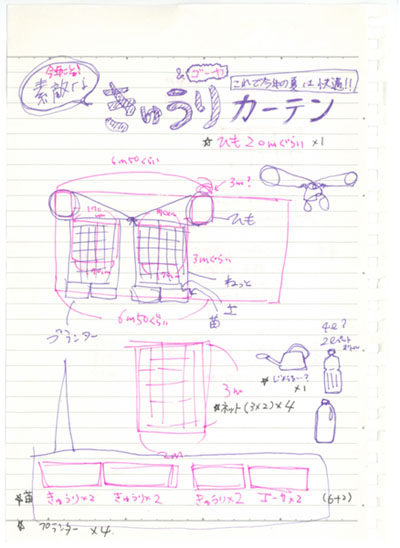 今年こそ!
素敵な
& ゴーヤ
きゅうり カーテン
これで今年の夏は快適!!
☆ ひも 20mぐらい ×1
6m50ぐらい
3m?
ひも
3mぐらい
ねっと
土
苗
プランター
6m50ぐらい
4ℓ?
2ℓペット
☆じょうろ…?
×1
3m
☆ネット(3×2)×4
2m
☆苗 きゅうり×2 きゅうり×2 きゅうり×2 ゴーヤ×2 (6+2)
☆ プランター ×4.